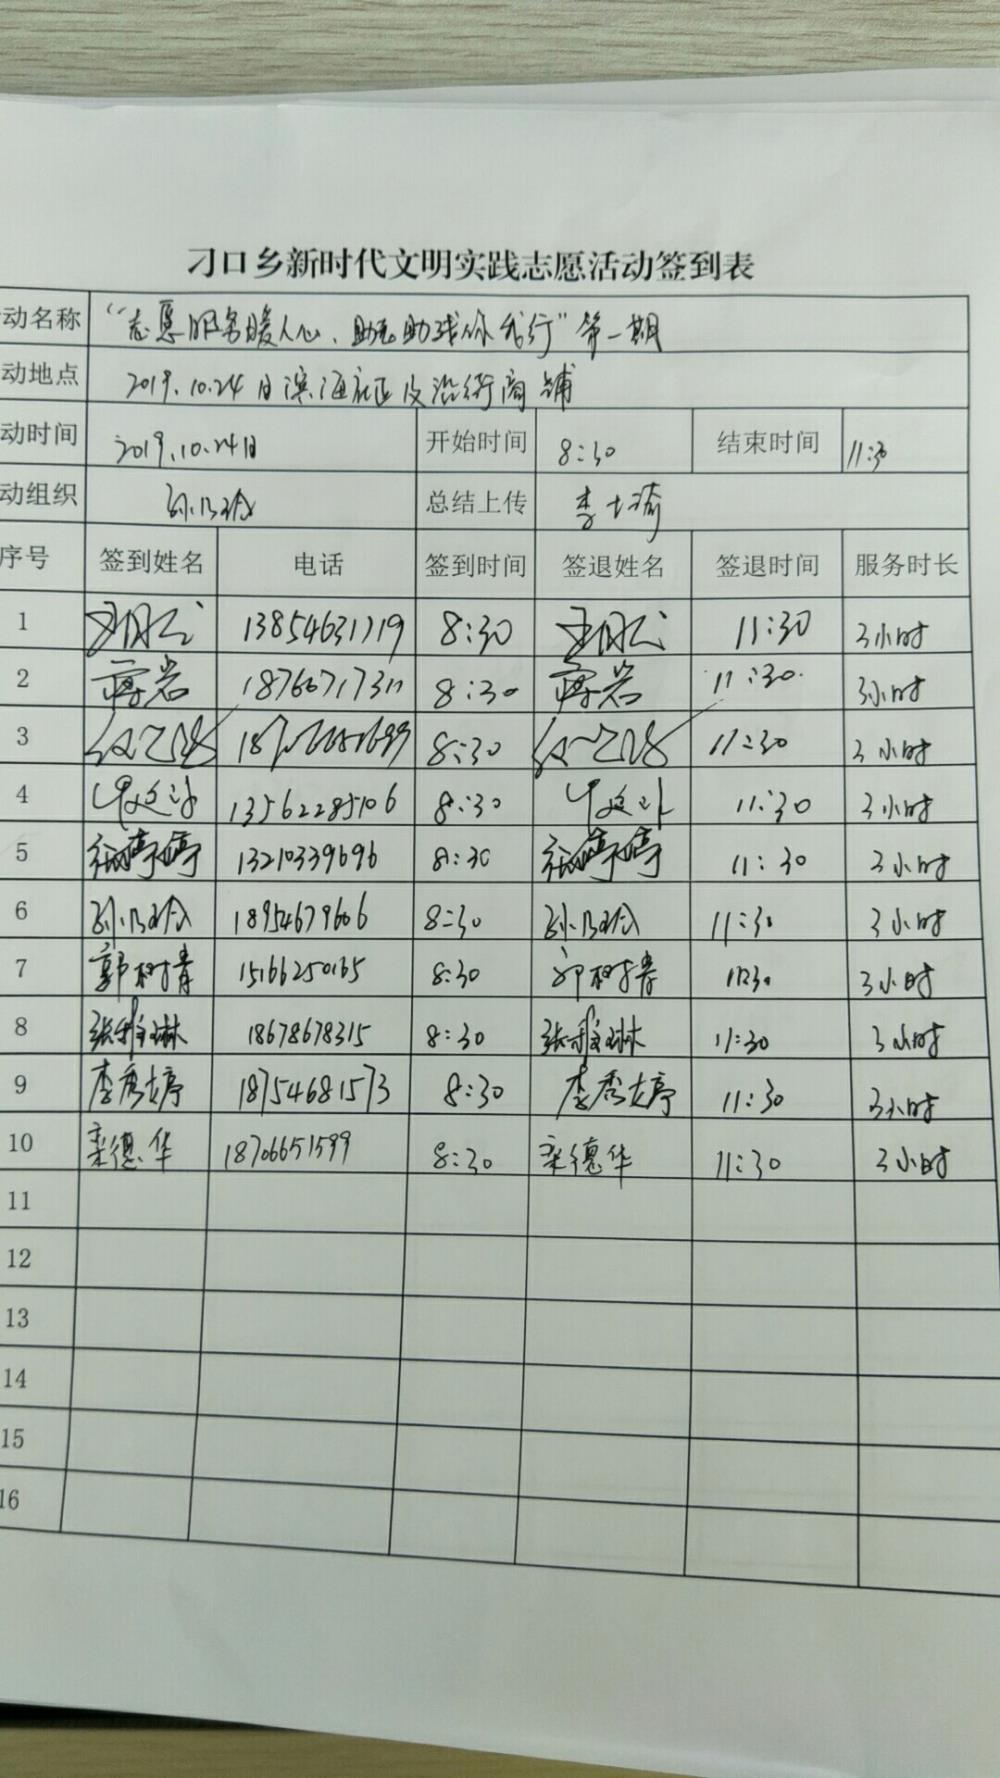 刁口乡新时代文明实践志愿活动签到表
动名称 "志愿服务暖人心、助无助残你我行"第一期
动地点 2019.10.24日滨海社区及沿街商铺
动时间 2019.10.24日 开始时间 8:30 结束时间 11:30
动组织 总结上传
序号 签到姓名 电话 签到时间 签退姓名 签退时间 服务时长
1 8:30 11:30 3小时
2 蒋岩 8:30 蒋岩 11:30 3小时
3 8:30 11:30 3小时
4 13562285106 8:30 11:30 3小时
5 张婷婷 13210339696 8:30 张婷婷 11:30 3小时
6 18954679606 8:30 11:30 3小时
7 郭树青 15166250165 8:30 郭树青 1130 3小时
8 张雅琳 18678678315 8:30 张雅琳 11:30 3小时
9 李秀婷 18754681573 8:30 李秀婷 11:30 3小时
10 栾德华 18706651599 8:30 栾德华 11:30 3小时
11
12
13
14
15
16